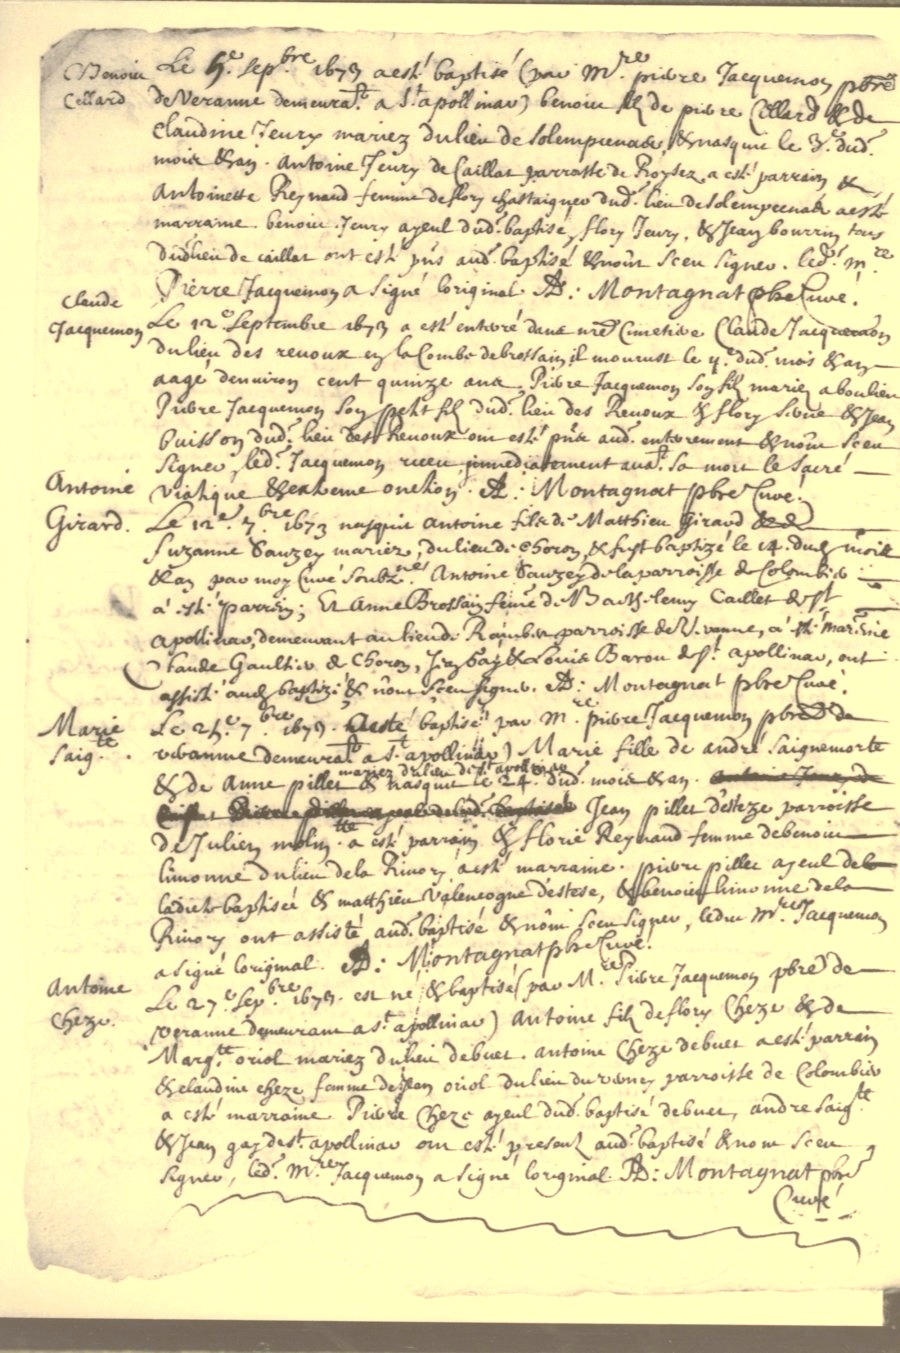 Benoin
Cellard
Le 5e. sepbre 1673 a esté baptisé (par Mre pierre Jacquemon pbre
de Veranne demeurat. a St. apollinar) benoin filz de pierre Cellard & de
Claudine Jeury mariez du lieu de & nasquit le 3e. dud.
mois & an. Antoine Jeury de Caillat parroisse de Roysez a esté parrain &
Antoinette Reynaud femme de flory chastaigner dud. lieu de a esté
marraine. benoin Jeury ayeul dud. baptisé, flory Jeury, & Jean bourrin tous
dud. lieu de caillat ont esté pns aud. baptisé & n'ont sceu signer. led. mre
Pierre Jacquemon a signé loriginal. A: Montagnat pbre Curé.
Claude
Jacquemon
Le 12e septembre 1673 a esté enterré dans nre Cimetiere Claude Jacquemon
du lieu des renoux en la Combe de brossain, il mourust le dud. mois & an
aagé denviron cent quinze ans, Pierre Jacquemon son filz marié a boulieu
Pierre Jacquemon son petit filz dud. lieu des Renoux & flory & Jean
buisson dud. lieu des Renoux ont esté pns aud. enterrement & n'ont sceu
signer, led. Jacquemon receu immediatement avat. sa mort le sacré
viatique & extreme onction. A: Montagnat pbre Curé.
Antoine
Girard.
Le 12e. 7bre 1673 nasquit antoine filz de Matthieu Girard & de
Suzanne Sauzey mariez, du lieu de Choron, & fust baptizé le 14. dud. mois
& an par moy Curé soubzné. Antoine Sauzey de la parroisse de Colombier
a esté parrein; Et Anne Brossain femme de Barthelemy Caillet de St
apollinar, demeurant au lieu de parroisse de Veranne, a esté marreine
Claude Gaultier de Choron, Jean Gay & Louis Baron de St. apollinar, ont
assisté aud. baptizé & n'ont sceu signer. A: Montagnat pbre Curé.
Marie
Saigte.
Le 25e. 7bre 1673. a esté baptisée par mre. pierre Jacquemon pbre de
veranne demeurat. a St. apollinar) Marie fille de andré Saignemorte
& de Anne pillet mariez du lieu de St. apollinar & nasquit le 24. dud. mois & an.
Jean pillet d'esteze parroisse
de Julien molin tte. a esté parrain & florie Reynaud femme de benoin
limonne du lieu de la Rivory a esté marraine. pierre pillet ayeul de
ladicte baptisée & matthieu Valencogne d'estese, & benoin limonne de la
Rivory ont assisté aud. baptisé & n'ont sceu signer, ledit Mre Jacquemon
a signé loriginal. A: Montagnat pbre Curé.
Antoine
Cheze.
Le 27e sepbre 1673. est né & baptisé (par Mre Pierre Jacquemon pbre de
veranne demeurant a St. apollinar) Antoine filz de flory Cheze & de
Margte. oriol mariez du lieu de buet. antoine Cheze de buet a esté parrain
& claudine cheze femme de Jean oriol du lieu du verney parroisse de Colombier
a esté marraine. Pierre Cheze ayeul dud. baptisé de buet, andre saigte.
& Jean gay de St. apollinar ont esté presentz aud. baptisé & n'ont sceu
signer, led. Mre Jacquemon a signé loriginal. A: Montagnat pbre
Curé